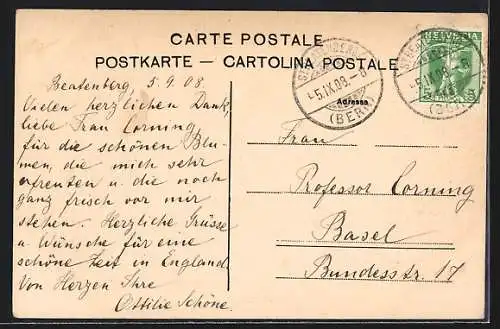 CARTE POSTALE
POSTKARTE — CARTOLINA POSTALE
HELVETIA
5 5
-5.IX.08.-8
(BERN)
Adresse
Beatenberg, 5.9.08.
Vielen herzlichen Dank,
liebe Frau Corning
für die schönen Blu-
men, die mich sehr
erfreuten u. die noch
ganz frisch vor mir
stehen. Herzliche Grüsse
u. Wünsche für eine
schöne Zeit in England.
Von Herzen Ihre
Ottilie Schöne.
Frau
Professor Corning
Basel
Bundesstr. 17